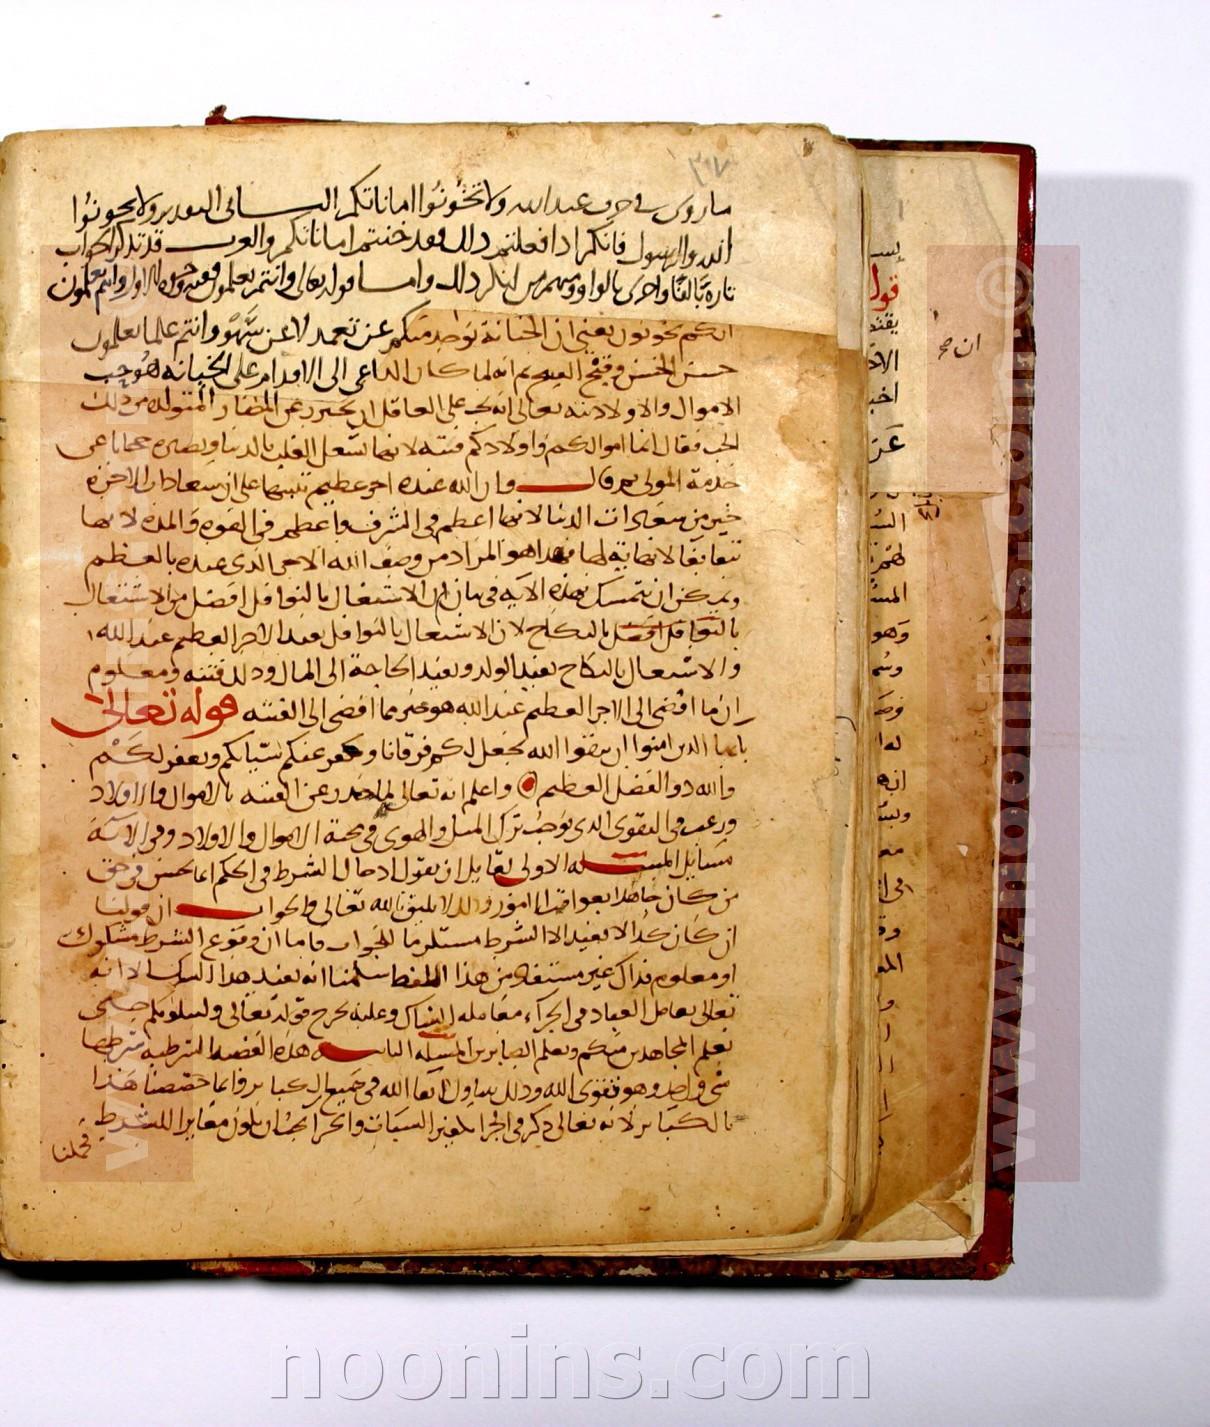 ما روى في حرف عبد الله ولا تخونوا اماناتكم الثاني التقدير ولا تخونوا
الله والرسول فانكم اذا فعلتم ذلك فقد خنتم اماناتكم والعرب قد تذكر الجواب
تارة بالفا واخرى بالواو ومنهم من انكر ذلك واما قوله تعالى وانتم تعلمون وانتم تعلمون
انكم تخونون يعني ان الخيانة توجد منكم عن تعمد لا عن سهو وانتم علما تعلمون
حسن الحسن وقبح القبيح ثم انه لما كان الداعي الى الاقدام على الخيانة هو حب
الاموال والاولاد نبه تعالى انه يجب على العاقل ان يحترز عن المضار المتولدة من ذلك
الحب فقال انما اموالكم واولادكم فتنة لانها تشغل القلب بالدنيا ويصير حجابا عن
خدمة المولى ثم قال وان الله عنده اجر عظيم تنبيها على ان سعادات الاخرة
خير من سعادات الدنيا لانها اعظم في الشرف واعظم في القوة والمدة لانها
تبقى بقا لا نهاية لها فهذا هو المراد من وصف الله الاجر الذي عنده بالعظم
ويمكن ان يتمسك بهذه الاية في بيان ان الاشتغال بالنوافل افضل من الاشتغال
بالنوافل افضل بالنكاح لان الاشتغال بالنوافل يفيد الاجر العظيم عند الله
والاشتغال بالنكاح يفيد الولد ويفيد الحاجة الى المال وذلك فتنة ومعلوم
ان ما افضى الى الاجر العظيم عند الله هو خير مما افضى الى الفتنة قوله تعالى
يا ايها الذين امنوا ان تتقوا الله يجعل لكم فرقانا ويكفر عنكم سيآتكم ويغفر لكم
والله ذو الفضل العظيم واعلم انه تعالى لما حذر عن الفتنة بالاموال والاولاد
ورغب في التقوى الذي يوجب ترك الميل والهوى في محبة الاموال والاولاد وفي الاية
مسايل المسئلة الاولى لقايل ان يقول ادخال الشرط في الحكم انما يحسن في حق
من كان جاهلا بعواقب الامور وذلك لا يليق بالله تعالى والجواب ان قولنا
ان كان كذا لا يفيد الا الشرط مستلزما للجواب فاما ان وقوع الشرط مشكوك
او معلوم فذاك غير مستفاد من هذا اللفظ سلمنا انه يفيد هذا الشك الا انه
تعالى يعامل العباد في الجزاء معاملة الشاك وعليه يخرج قوله تعالى ولنبلونكم حتى
نعلم المجاهدين منكم ونعلم الصابرين المسئلة الثانية هذه القضية الشرطية شرطها
شي واحد وهو تقوى الله وذلك يتناول اتقا الله في جميع الكبائر وانما خصصنا هذا
بالكبائر لانه تعالى ذكر في الجزا تكفير السيآت والجزا يجب ان يكون مغايرا للشرط
فحملنا
قول
ان صح
noonins.com
www.noonins.com